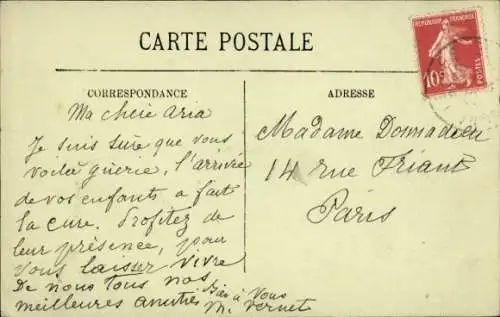 CARTE POSTALE
REPUBLIQUE FRANÇAISE
10c
POSTES
CORRESPONDANCE
Ma chère Aria
Je suis sûre que vous
voilà guérie, l'arrivée
de vos enfants a fait
la cure. Profitez de
leur présence, pour
vous laisser vivre
De nous tous nos
meilleures amitiés
Bien à Vous
M. Vernet
ADRESSE
Madame Donnadieu
14 rue Friant
Paris